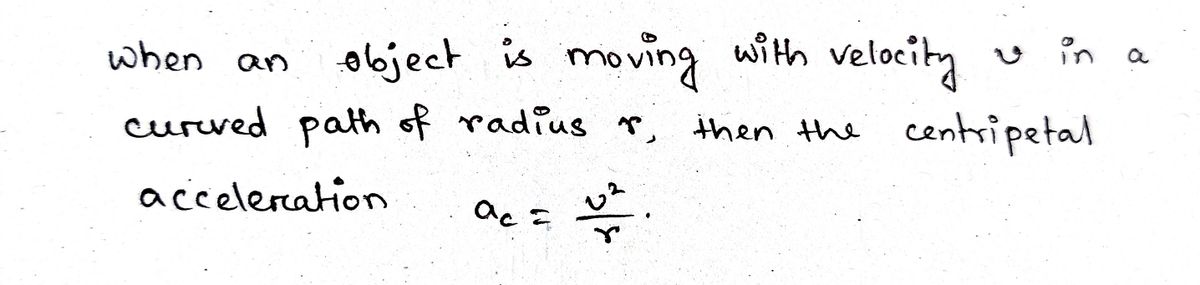 when an object is moving with velocity v in a
curved path of radius r, then the centripetal
acceleration a_c = v²/r.